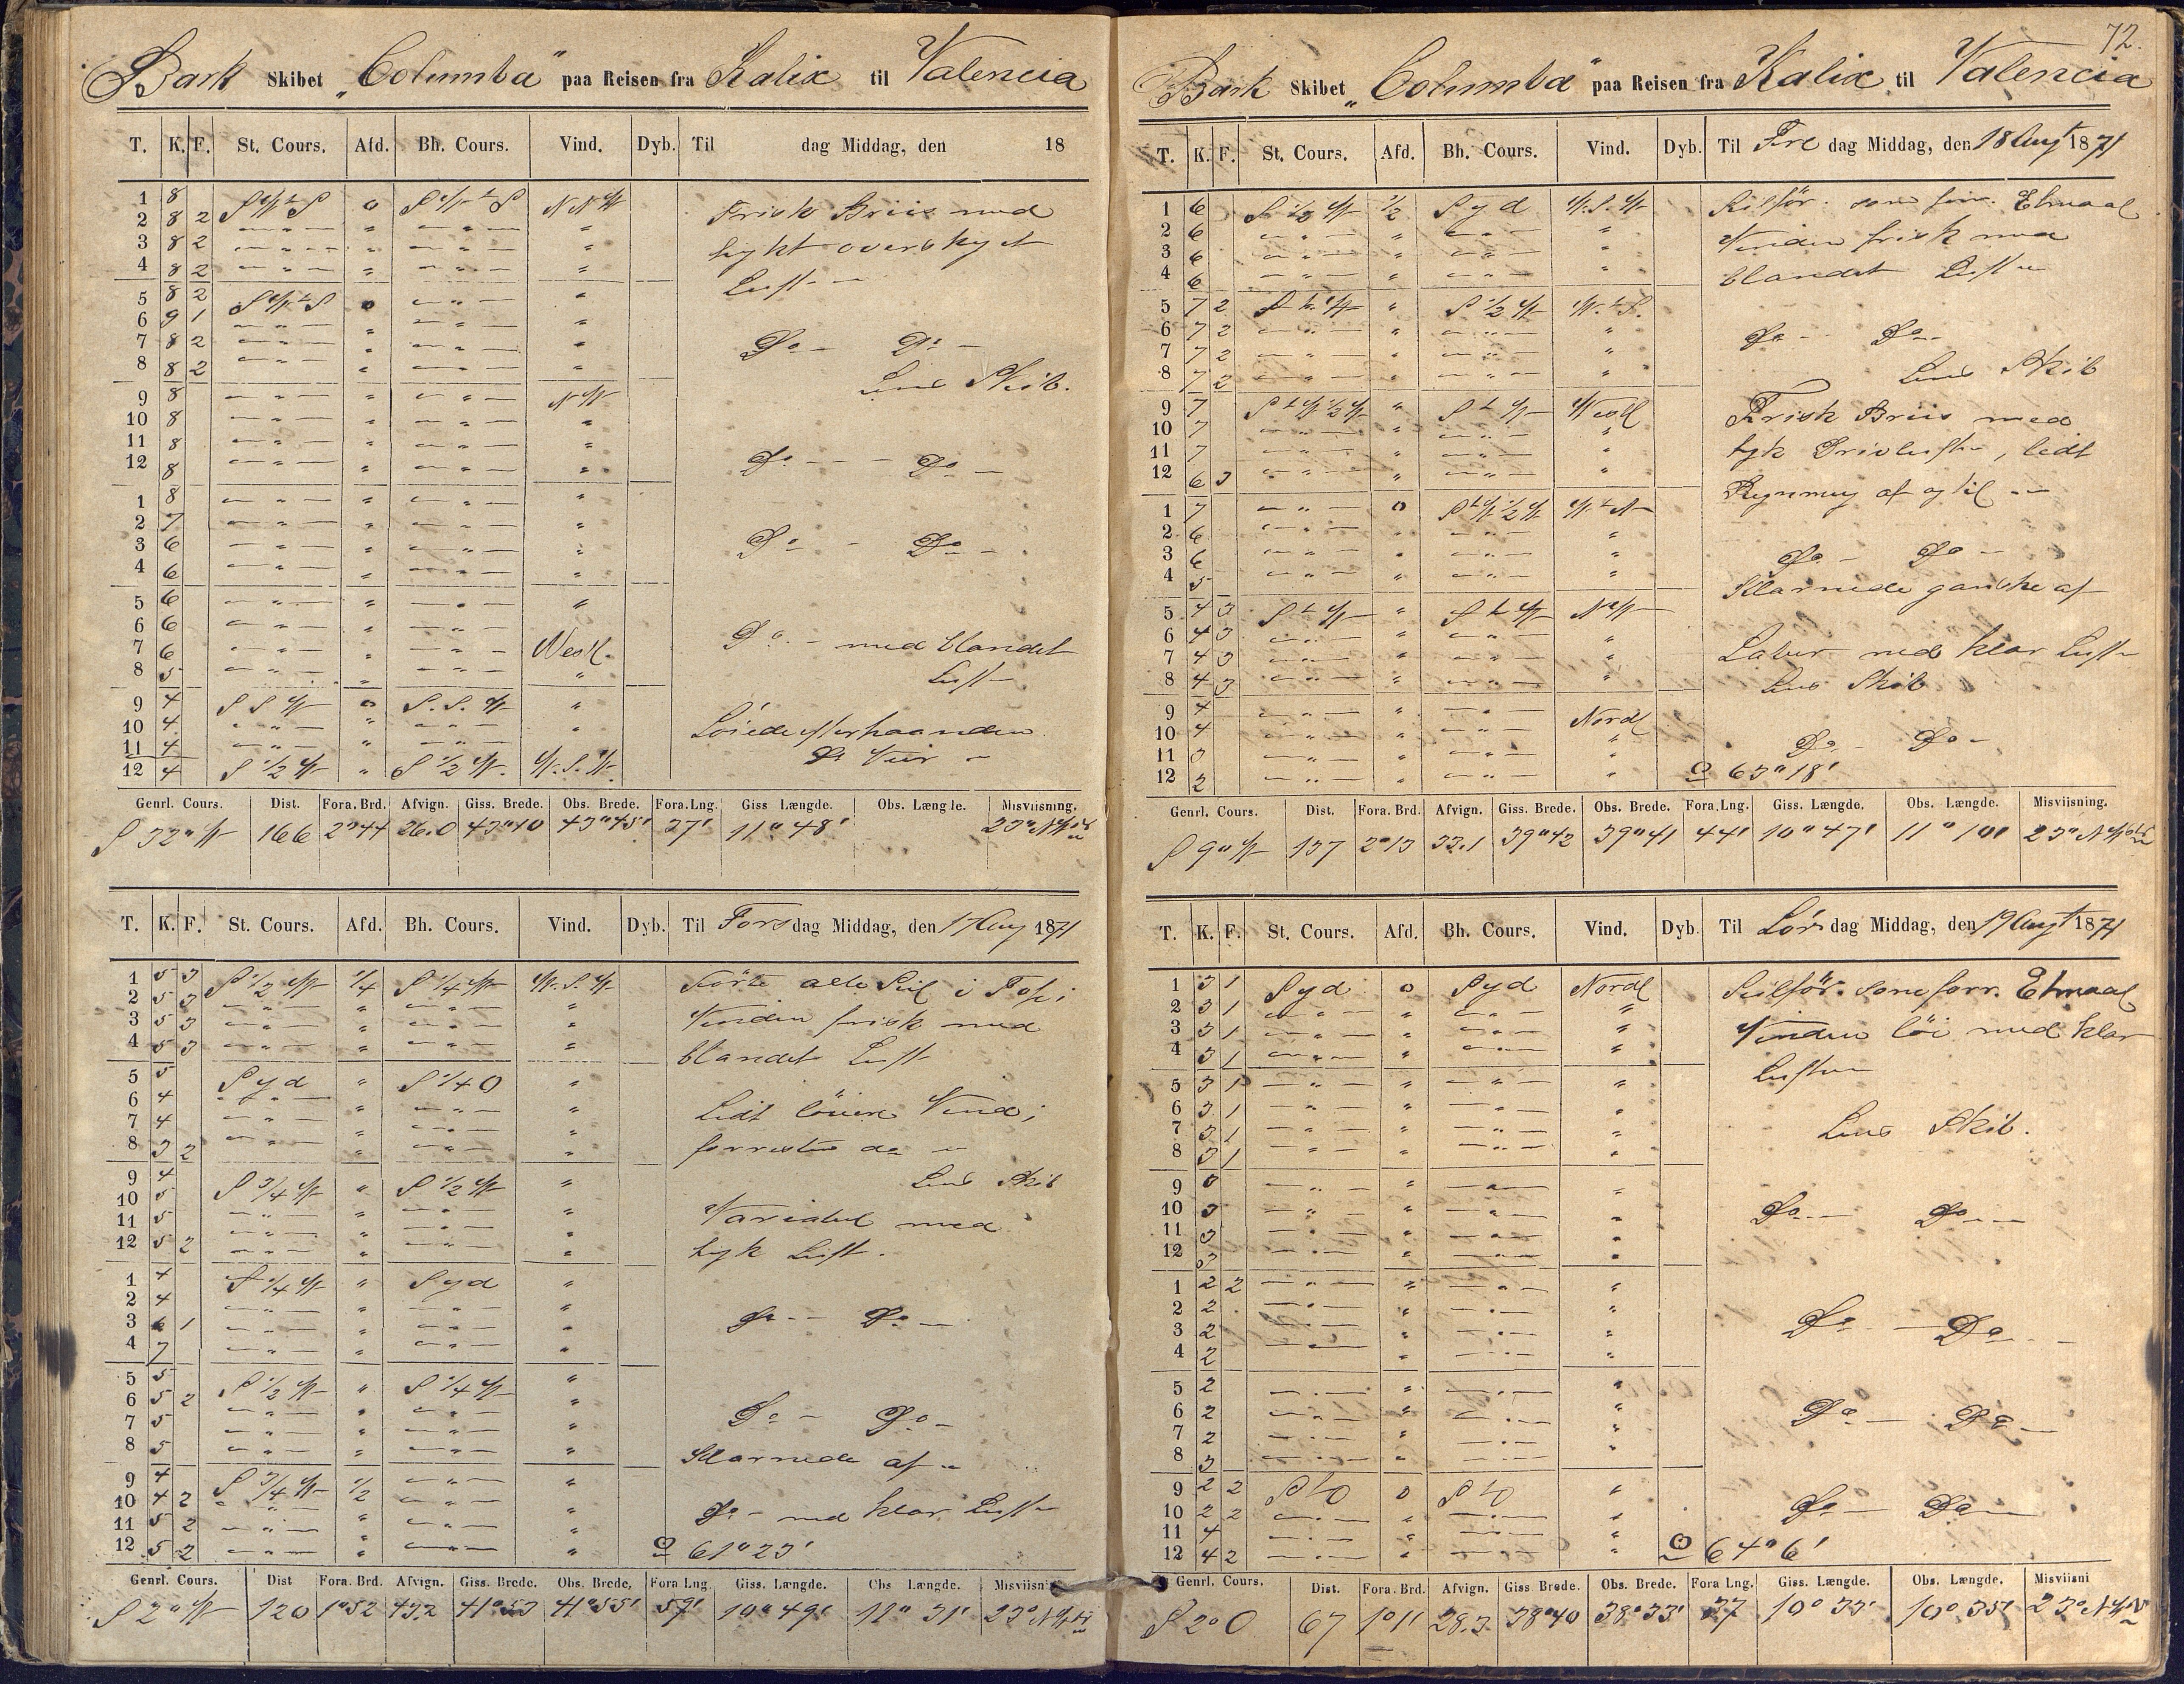 Bark Skibet „Columba" paa Reisen fra Kalix til Valencia
T. K. F. St. Cours. Afd. Bh. Cours. Vind. Dyb. Til dag Middag, den 18
1 8 SWtS 0 SWtS NNW Frisk Briis med
2 8 2 — " — " — " — "
3 8 2 — " — " — " — " tykt overskyet
4 8 2 — " — " — " — " Luft
5 8 2 SWtS 0 — " — "
6 9 1 — " — " — " — "
7 8 2 — " — " — " — " Do — Do —
8 8 2 — " — " — " — " Lens Skib.
9 8 — " — " — " — NW
10 8 — " — " — " — "
11 8 — " — " — " — "
12 8 — " — " — " — " Do — Do —
1 8 — " — " — " — "
2 7 — " — " — " — "
3 6 — " — " — " — " Do — Do —
4 6 — " — " — " — "
5 6 — " — " — " — "
6 6 — " — " — " —
7 6 — " — " — " — Westl. Do. — med blandet
8 5 — " — " — " — " Luft
9 4 SSW 0 S.S.W "
10 4 — " — " — " — " Løiede efterhaanden
11 4 — " — " — " —
12 4 S 1/2 W " S 1/2 W. W.S.W. Do Veir
Genrl. Cours. Dist. Fora. Brd. Afvign. Giss. Brede. Obs. Brede. Fora. Lng. Giss Længde. Obs. Længde. Misviisning.
S 32° W 166 2°44 26.0 43°40 43°45' 37' 11° 48' 23° NW
T. K. F. St. Cours. Afd. Bh. Cours. Vind. Dyb. Til Torsdag Middag, den 17 Aug 1871
1 5 3 S 1/2 W 1/4 S 1/4 W W.S.W Förte alle Seil i Top;
2 5 3 — " — " — " — " Vinden frisk med
3 5 3 — " — " — " — "
4 5 3 — " — " — " — " blandet Luft
5 5 Syd " S 1/4 O "
6 4 — " — " — " — " Lidt löiere Vind i
7 4 — " — " — " — "
8 3 2 — " — " — " — " forresten do
9 4 S 3/4 W " S 1/2 W " Lens Skib
10 5 — " — " — " — "
11 5 — " — " — " — " Variabel med
12 5 2 — " — " — " — " tyk Luft.
1 4 S 1/4 W " Syd "
2 4 — " — " — " — "
3 6 1 — " — " — " — " Do — Do —
4 7 — " — " — " — "
5 5 S 1/2 W " S 1/4 W "
6 5 2 — " — " — " — "
7 5 — " — " — " — " Do — Do —
8 5 — " — " — " — " Klarnede af
9 4 S 3/4 W 1/2 — " — "
10 4 2 — " — — " — " Do — med klar Luft
11 5 2 — " — " — " — "
12 5 2 — " — " — " — " 61°23'
Genrl. Cours. Dist Fora. Brd. Afvign. Giss. Brede. Obs. Brede, Fora Lng. Giss. Længde. Obs Længde. Misviisni
S 2° W 120 1°52 43.2 41°53 41°55' 59' 10° 49' 11° 31' 23° NW
72.
Bark Skibet „Columba" paa Reisen fra Kalix til Valencia
T. K. F. St. Cours. Afd. Bh. Cours. Vind. Dyb. Til Fredag Middag, den 18 Augt 1871
1 6 S 1/2 W 1/2 Syd W.S.W Seilför. som forr. Etmaal
2 6 — " — " — " — " Vinden frisk med
3 6 — " — " — " — "
4 6 — " — " — " — " blandet Luft
5 7 2 StW " S 1/2 W W.tS.
6 7 2 — " — " — " — " Do — Do —
7 7 2 — " — " — " — "
8 7 2 — " — " — " — " Lens Skib
9 7 StW 1/2 W " StW Westl Frisk Briis med
10 7 — " — " — " — "
11 7 — " — " — " — " tyk Drivluft, lidt
12 6 3 — " — " — " — " Regnning af og til
1 7 — " — 0 StW 1/2 W W.tN
2 6 — " — " — " — "
3 6 — " — " — " — " Do — Do —
4 5 — " — " — " — " Klarnede ganske af
5 4 3 StW " StW NW
6 4 3 — " — " — " — "
7 4 3 — " — " — " — " Laber med klar Luft
8 4 3 — " — " — " — " Lens Skib
9 4 — " — " — " — Nordl
10 4 — " — " — " — "
11 3 — " — " — " — " Do — Do —
12 2 — " — " — " — " 63°18'
Genrl. Cours. Dist. Fora. Brd. Afvign. Giss. Brede. Obs. Brede. Fora. Lng. Giss. Længde. Obs. Længde. Misviisning.
S 9° W 137 2°13 33.1 39°42 39°41 44' 10° 47' 11° 10' 23° NW
T. K. F. St. Cours. Afd. Bh. Cours. Vind. Dyb. Til Lørdag Middag, den 19 Augt 1871
1 3 1 Syd 0 Syd Nordl Seilför. som forr. Etmaal
2 3 1 — " — " — " — "
3 3 1 — " — " — " — " Vinden löi med klar
4 3 1 — " — " — " — " Luft
5 3 1 — " — " — " — "
6 3 1 — " — " — " — "
7 3 1 — " — " — " — " Lens Skib.
8 3 1 — " — " — " — "
9 3 — " — " — " — "
10 3 — " — " — " — " Do — Do —
11 3 — " — " — " — "
12 3 — " — " — " — "
1 2 2 — " — " — " — "
2 2 — " — " — " — "
3 2 — " — " — " — " Do — Do —
4 2 — " — " — " — "
5 2 — " — " — " — "
6 2 — " — " — " — " Do — Do —
7 2 — " — " — " — "
8 3 — " — " — " —
9 2 2 StO 0 StO "
10 2 2 — " — " — " — " Do — Do —
11 4 — " — " — " — "
12 4 2 — " — " — " — " 64°6'
Genrl. Cours. Dist. Fora. Brd. Afvign. Giss Brede. Obs. Brede. Fora Lng. Giss. Længde. Obs. Længde. Misviisni
S 2° O 67 1°11' 28.3 38°40 38°33' 37 10° 33' 10° 35' 23° NW